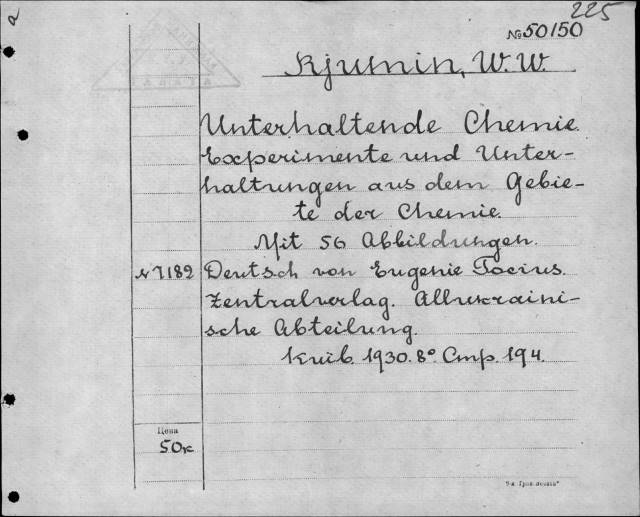 225
№50150
Rjumin, W.W.
Unterhaltende Chemie.
Experimente und Unter-
haltungen aus dem Gebie-
te der Chemie.
Mit 56 Abbildungen.
N 7182 Deutsch von Eugenie Tocius.
Zentralverlag. Allukraini-
sche Abteilung.
Київ. 1930. 8° Стр. 194.
Цена
50к